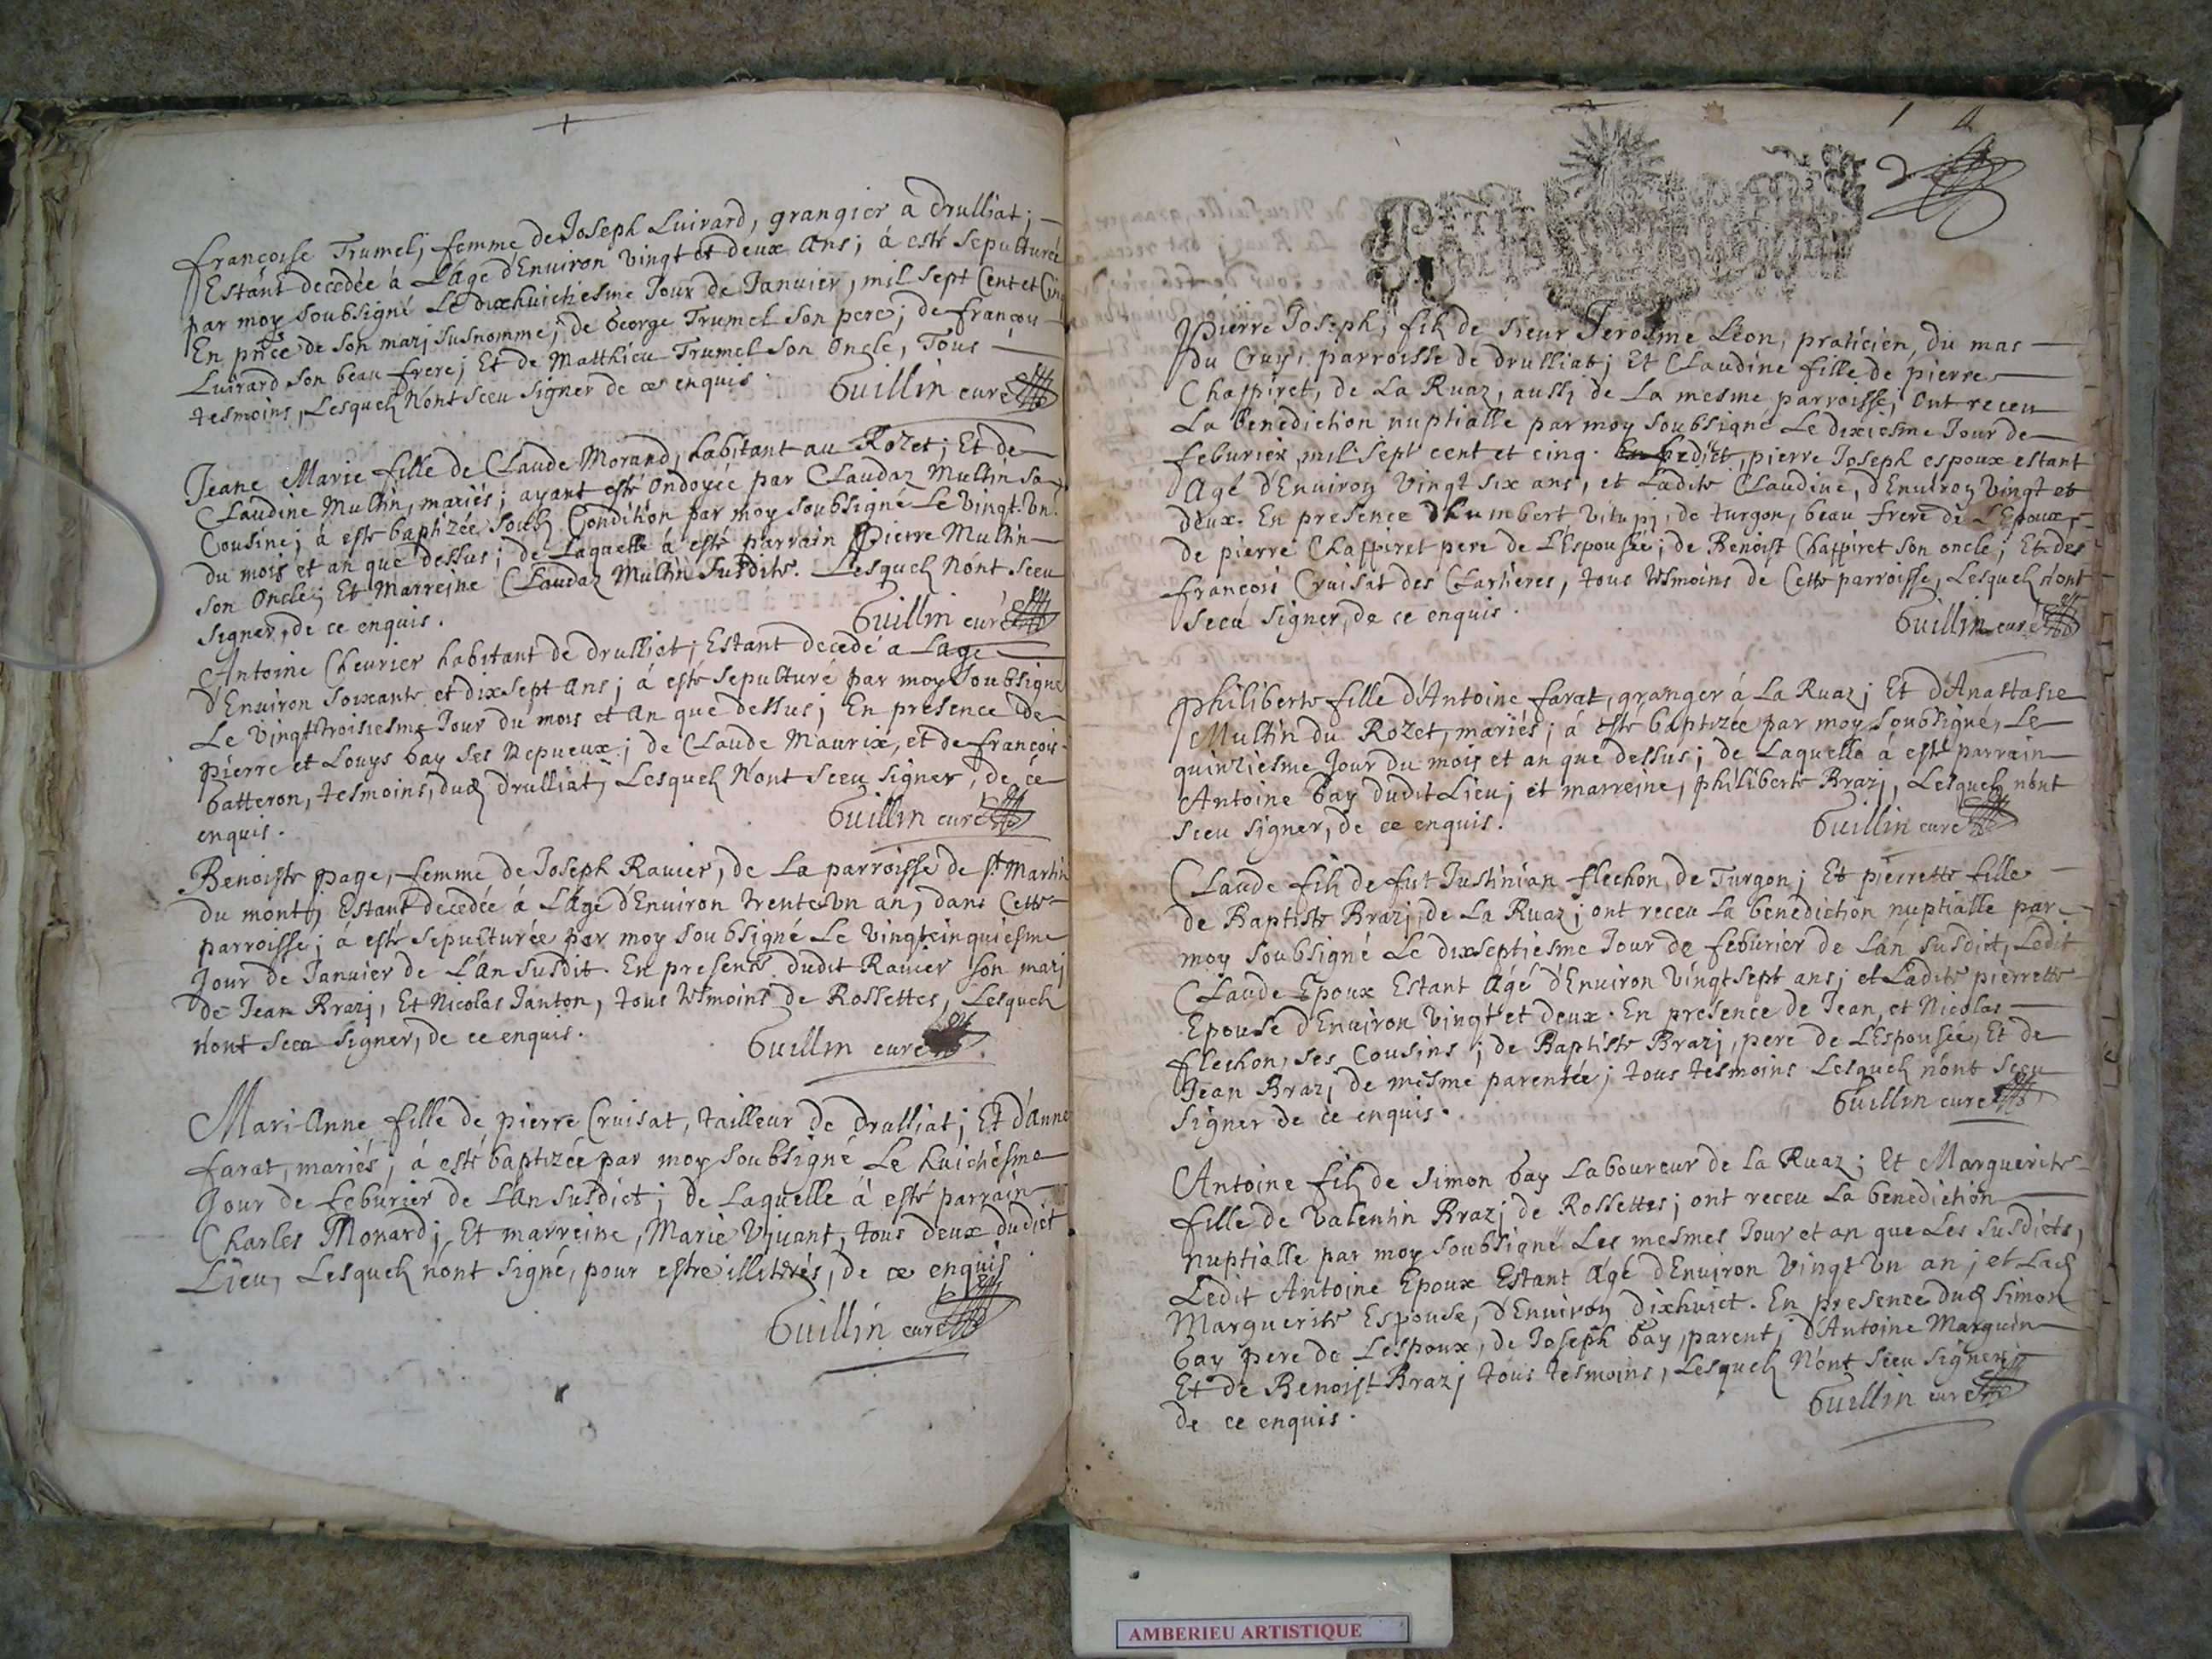 françoise Trumel, femme de Joseph Luirard, grangier a drulliat;
Estant decedée à L'âge d'Enuiron vingt et deux Ans; à esté sepulturée
par moy soubsigné Le dixhuictiesme Jour de Januier, mil sept Cent et Cinq
En pnce de son marj susnommé; de George Trumel son pere; de françois
Luirard son beau frere; Et de Matthieu Trumel son Oncle, Tous
tesmoins, Lesquels N'ont sceu signer de ce enquis.
Guillin curé
Jeane Marie fille de Claude Morand, habitant au Rozet; Et de
Claudine Multin, mariés; ayant esté Ondoyée par Claudaz Multin sa
Cousine; à esté baptizée soub Condition par moy soubsigné Le vingt Un
du mois et an que dessus; de Laquelle à esté parrain Pierre Multin
son Oncle; Et Marreine Claudaz Multin susdite. Lesquels N'ont sceu
signer, de ce enquis.
Guillin curé
Antoine Cheurier habitant de drulliat; Estant decedé a L'age
d'Enuiron soixante et dixsept Ans; à esté sepulturé par moy soubsigné
Le vingt troisiesme Jour du mois et an que dessus; En presence de
pierre et Louys Gay ses Nepueux; de Claude Maurix, et de françois
Gatteron, tesmoins, dud drulliat, Lesquels N'ont sceu signer, de ce
enquis.
Guillin curé
Benoiste page, femme de Joseph Rauier, de La parroisse de St Martin
du mont, Estant decedée à L'Age d'Enuiron trente Un an, dans Cette
parroisse; à esté sepulturée par moy soubsigné Le vingtcinquiesme
Jour de Januier de L'an susdit. En presence dudit Rauier son marj
de Jean Brazj, Et Nicolas Janton, tous tesmoins de Rossettes, Lesquels
n'ont sceu signer, de ce enquis.
Guillin curé
Mari-Anne fille de pierre Cruisat, tailleur de drulliat; Et d'Anne
farat, mariés, à esté baptizée par moy soubsigné Le huictiesme
Jour de feburier de L'an susdict; de Laquelle à esté parrain
Charles Monard; Et marreine, Marie Viuant, tous deux dudict
Lieu, Lesquels n'ont signé, pour estre illiterés, de ce enquis
Guillin curé
Pierre Joseph, fils de sieur Jerosme Leon, praticien, du mas
du Cruy, parroisse de drulliat; Et Claudine fille de pierre
Chappiret, de La Ruaz, aussi de La mesme parroisse, Ont receu
La benediction nuptialle par moy soubsigné Le dixiesme Jour de
feburier mil sept cent et cinq. Ledict, pierre Joseph espoux estant
Agé d'Enuiron vingt six ans, et Ladite Claudine, d'Enuiron vingt et
deux. En presence d'humbert Vitupj, de turgon, beau frere de L'Epoux,
de pierre Chappiret pere de L'Espousée; de Benoist Chappiret son oncle; Et de
françois Cruisat des Clartieres, tous tesmoins de Cette parroisse, Lesquels n'ont
sceu signer, de ce enquis.
Guillin curé
Philiberte fille d'Antoine farat, granger à La Ruaz; Et d'Anastasie
Multin du Rozet, mariés; à esté baptizée par moy soubsigné, Le
quinziesme Jour du mois et an que dessus; de Laquelle à esté parrain
Antoine Gay dudit Lieu; et marreine, philiberte Brazj, Lesquels n'ont
sceu signer, de ce enquis.
Guillin curé
Claude fils de fut Justinian flechon, de Turgon; Et pierrette fille
de Baptiste Brazj, de La Ruaz; ont receu La benediction nuptialle par
moy soubsigné Le dixseptiesme Jour de feburier de L'an susdict, Ledit
Claude Epoux Estant Agé d'Enuiron vingt sept ans; et Ladite pierrette
Epouse d'Enuiron vingt et deux. En presence de Jean, et Nicolas
flechon, ses Cousins; de Baptiste Brazj, pere de L'Espousée, Et de
Jean Brazj de mesme parentée; tous tesmoins Lesquels n'ont sceu
signer de ce enquis.
Guillin curé
Antoine fils de Simon Gay Laboureur de La Ruaz; Et Marguerite
fille de Valentin Brazj de Rossettes; ont receu La benediction
nuptialle par moy soubsigné Les mesmes Jour et an que Les susdicts,
Ledit Antoine Epoux Estant Agé d'Enuiron vingt Un an; et Lad
Marguerite Espouse, d'Enuiron dixhuict. En presence dud Simon
Gay pere de L'espoux, de Joseph Gay, parent; d'Antoine Marguin
Et de Benoist Brazj tous tesmoins, Lesquels N'ont sceu signer
de ce enquis.
Guillin curé
AMBERIEU ARTISTIQUE